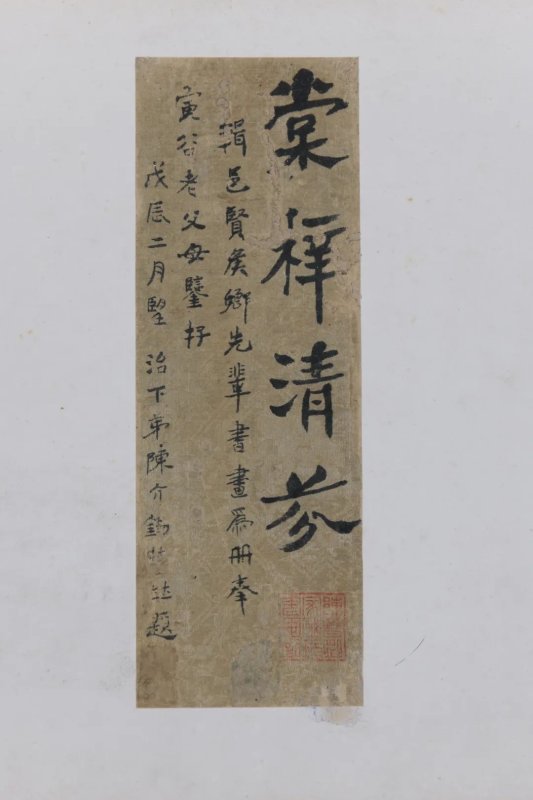 棠梓清芬
輯邑賢矦鄉先輩書畫爲冊奉
寅谷老父母鑒存
戊辰二月朢 治下弟陳介錫裝並題